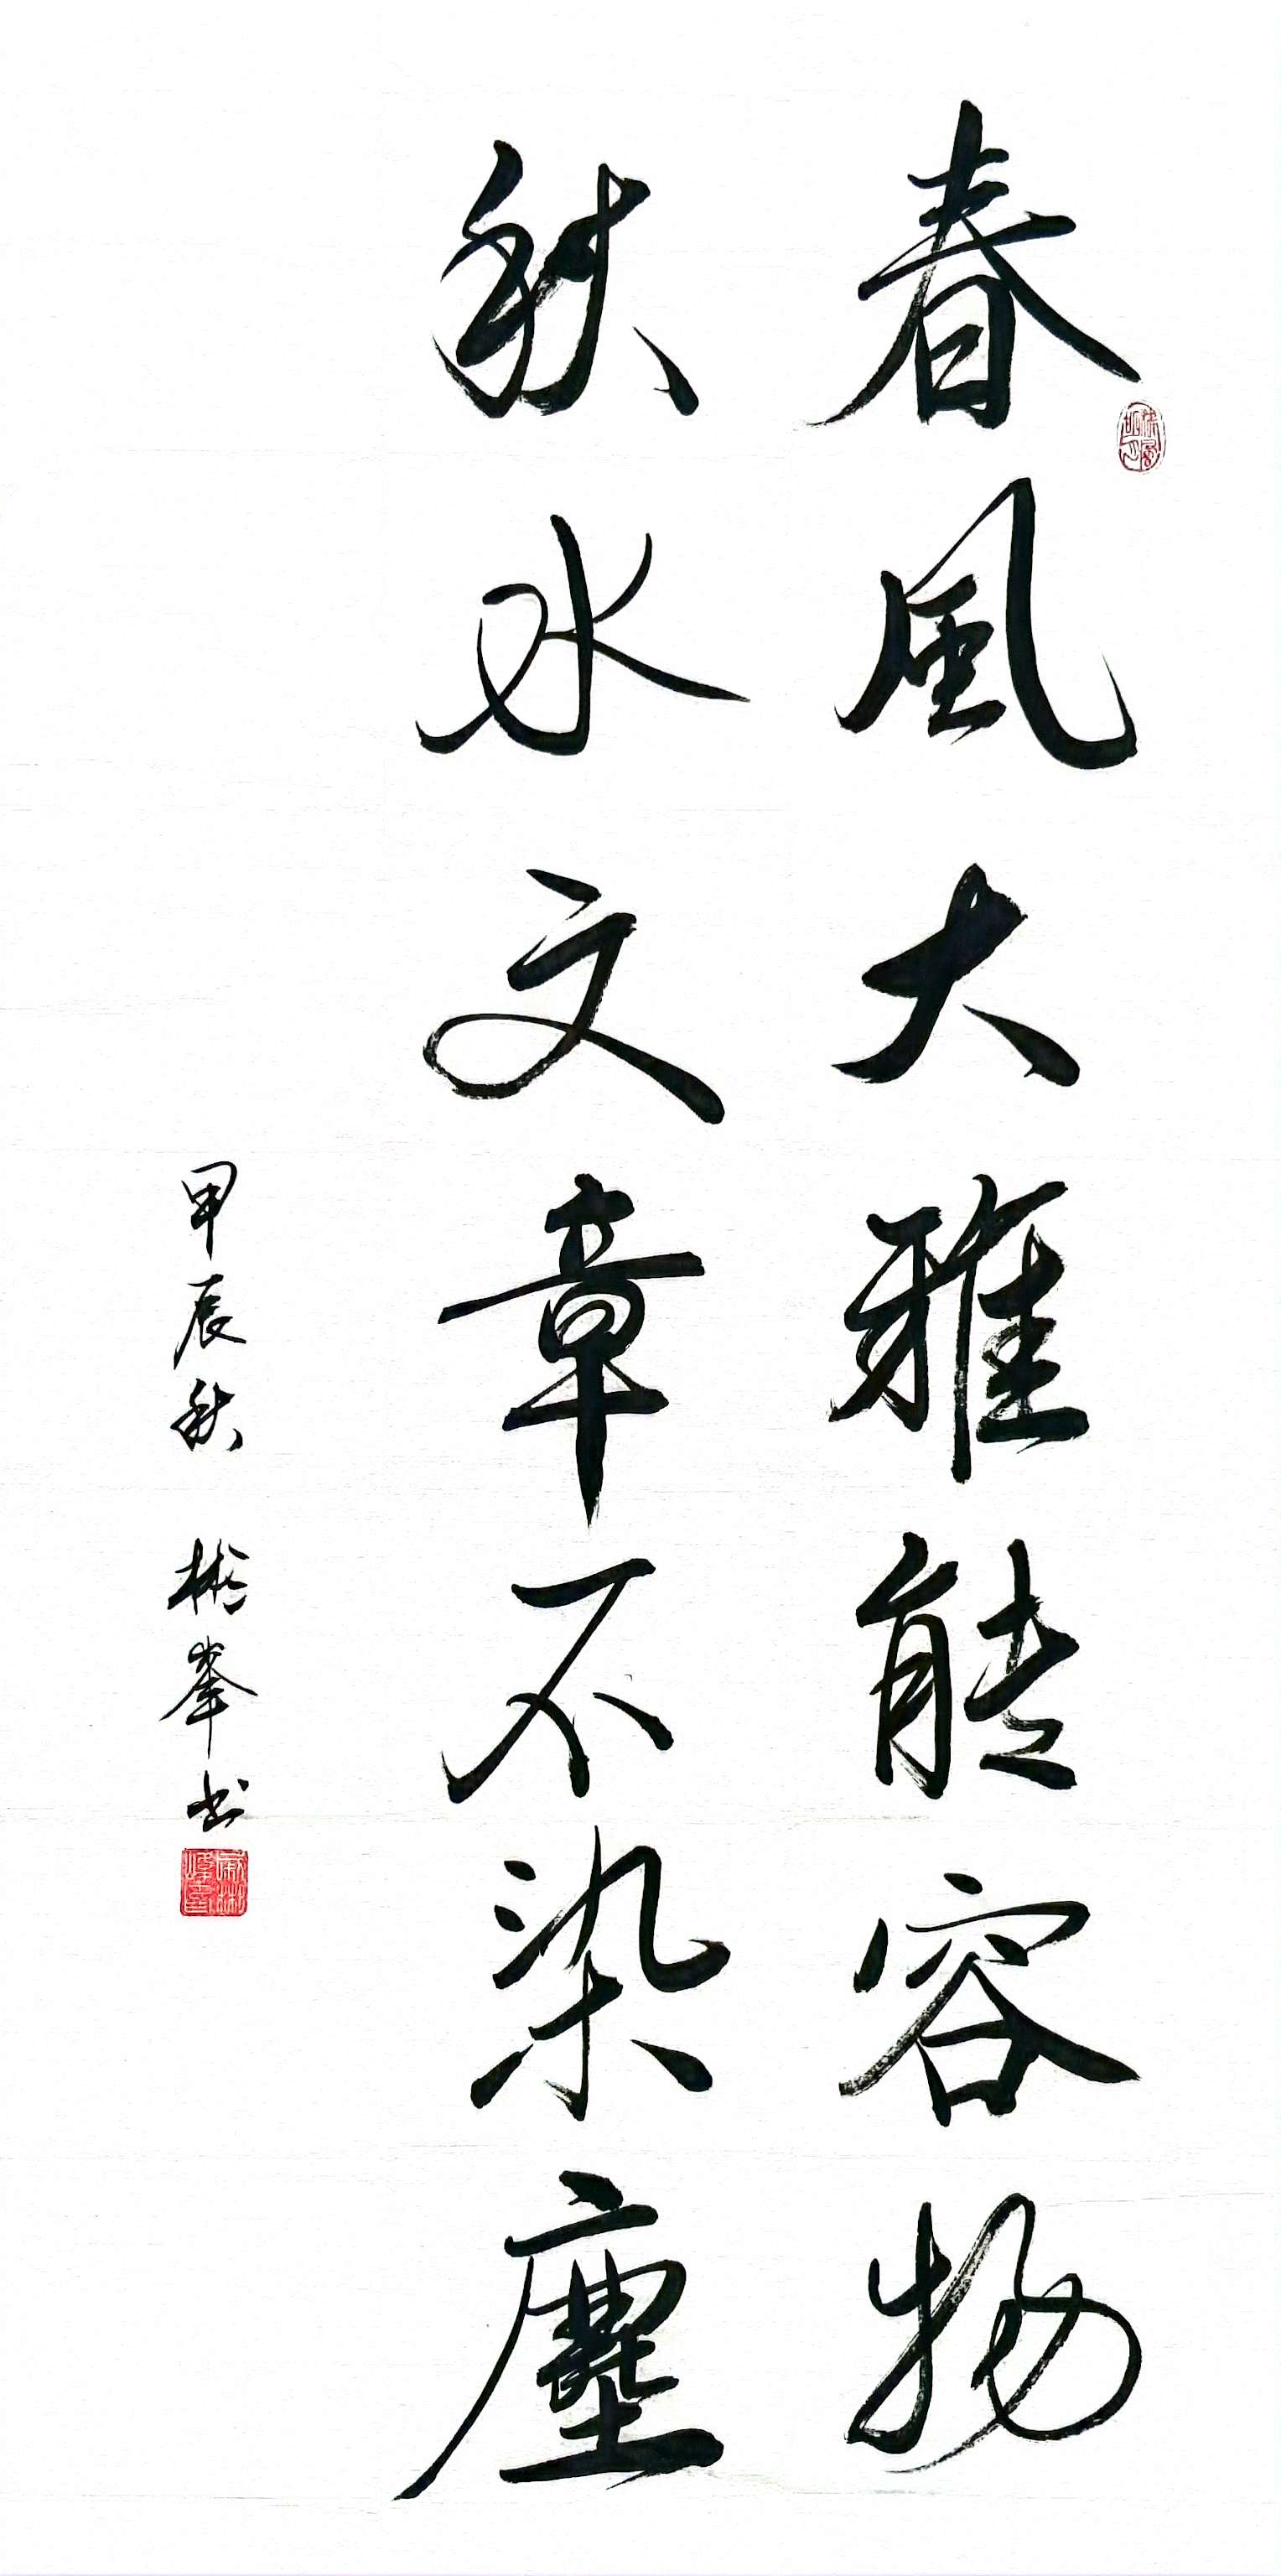 春風大雅能容物
秋水文章不染塵
甲辰秋 彬峯书